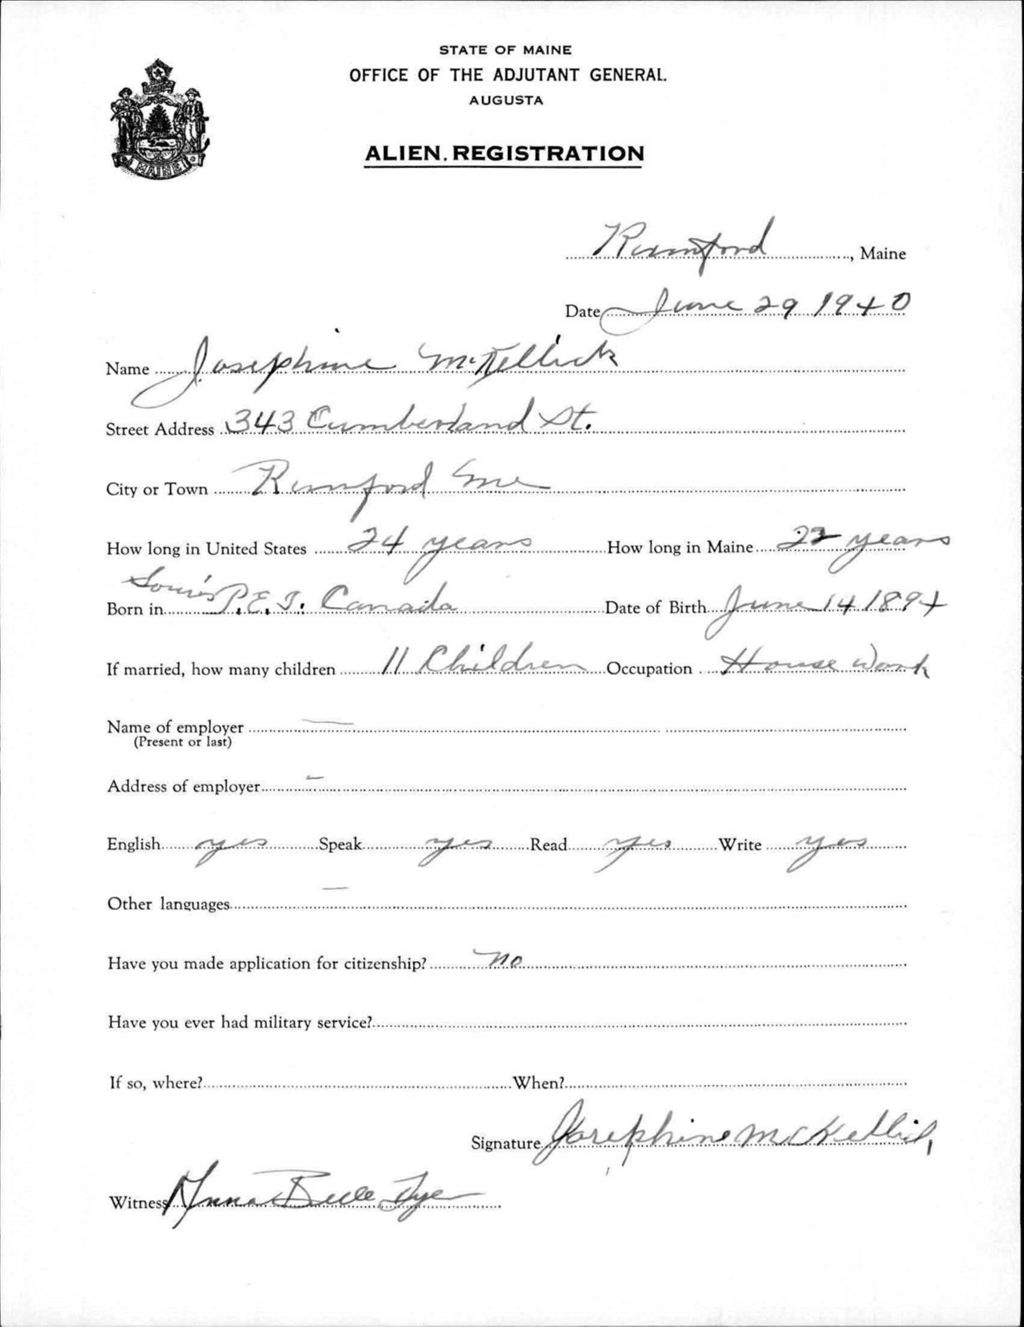 STATE OF MAINE
OFFICE OF THE ADJUTANT GENERAL
AUGUSTA
ALIEN REGISTRATION
MAINE
Rumford, Maine
Date June 29 1940
Name Josephine McKellick
Street Address 343 Cumberland St.
City or Town Rumford Me
How long in United States 24 years How long in Maine 22 years
Souris
Born in P.E.I. Canada Date of Birth June 14 1894
If married, how many children 11 Children Occupation House Work
Name of employer —
(Present or last)
Address of employer —
English yes Speak yes Read yes Write yes
Other languages —
Have you made application for citizenship? no
Have you ever had military service?
If so, where? When?
Signature Josephine McKellick
Witness Anna Belle Dyer